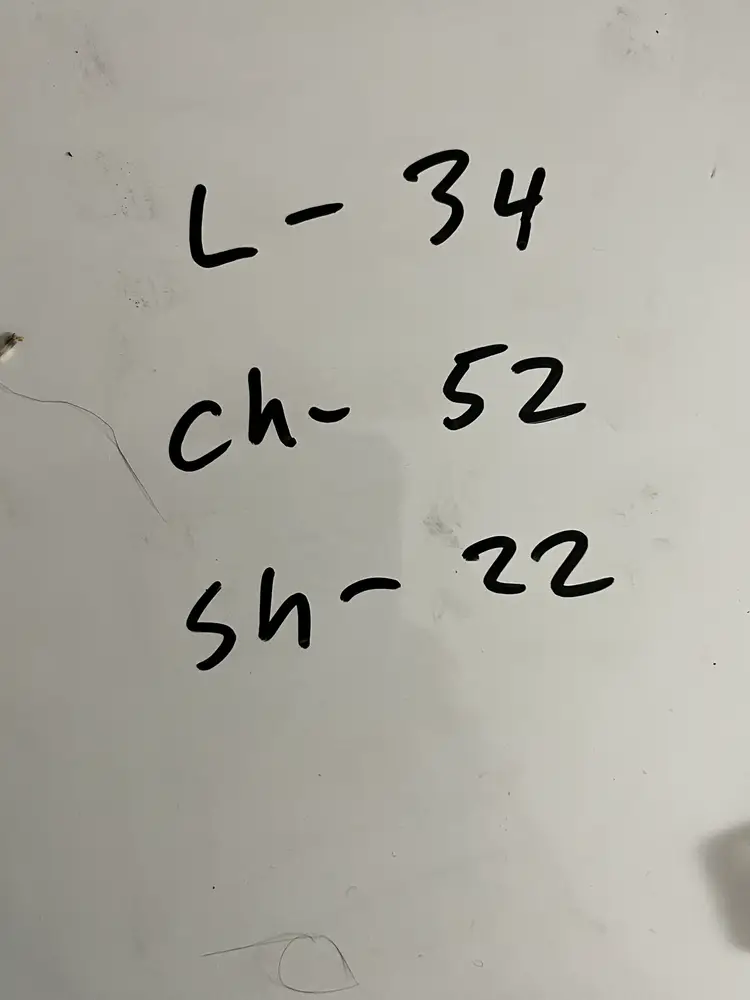 L- 34
ch- 52
sh- 22